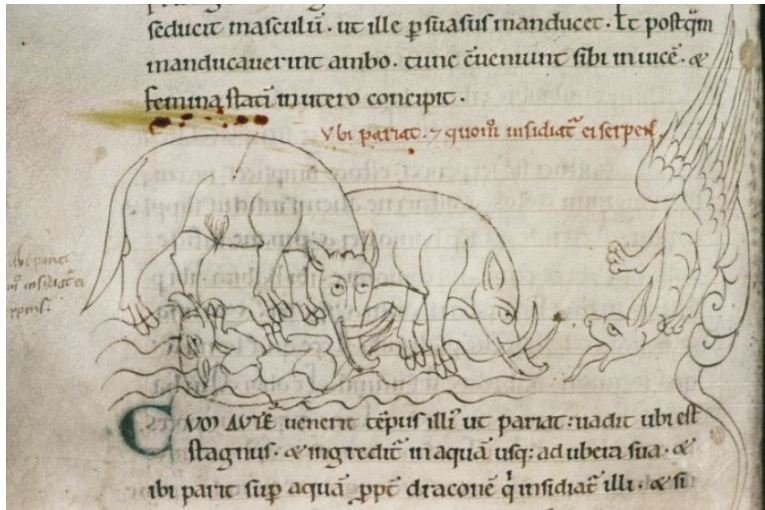 seducit masculū. ut ille ꝑsuasus manducet. Et postq̄m
manducauerint ambo. tunc c̄ueniunt sibi in uicē. &
femina statī in utero concipit.
Vbi pariat. ⁊ quom̄ insidiat̄ ei serpens.
ubi pariet
insidiat̄ ei
CVM AVTĒ uenerit tēpus illiꝰ ut pariat: uadit ubi est
stagnus. & ingredit̄ in aquā usq: ad ubera sua. &
ibi parit suꝑ aquā ꝓpt̄ draconē qⁱ insidiat̄ illi. & si